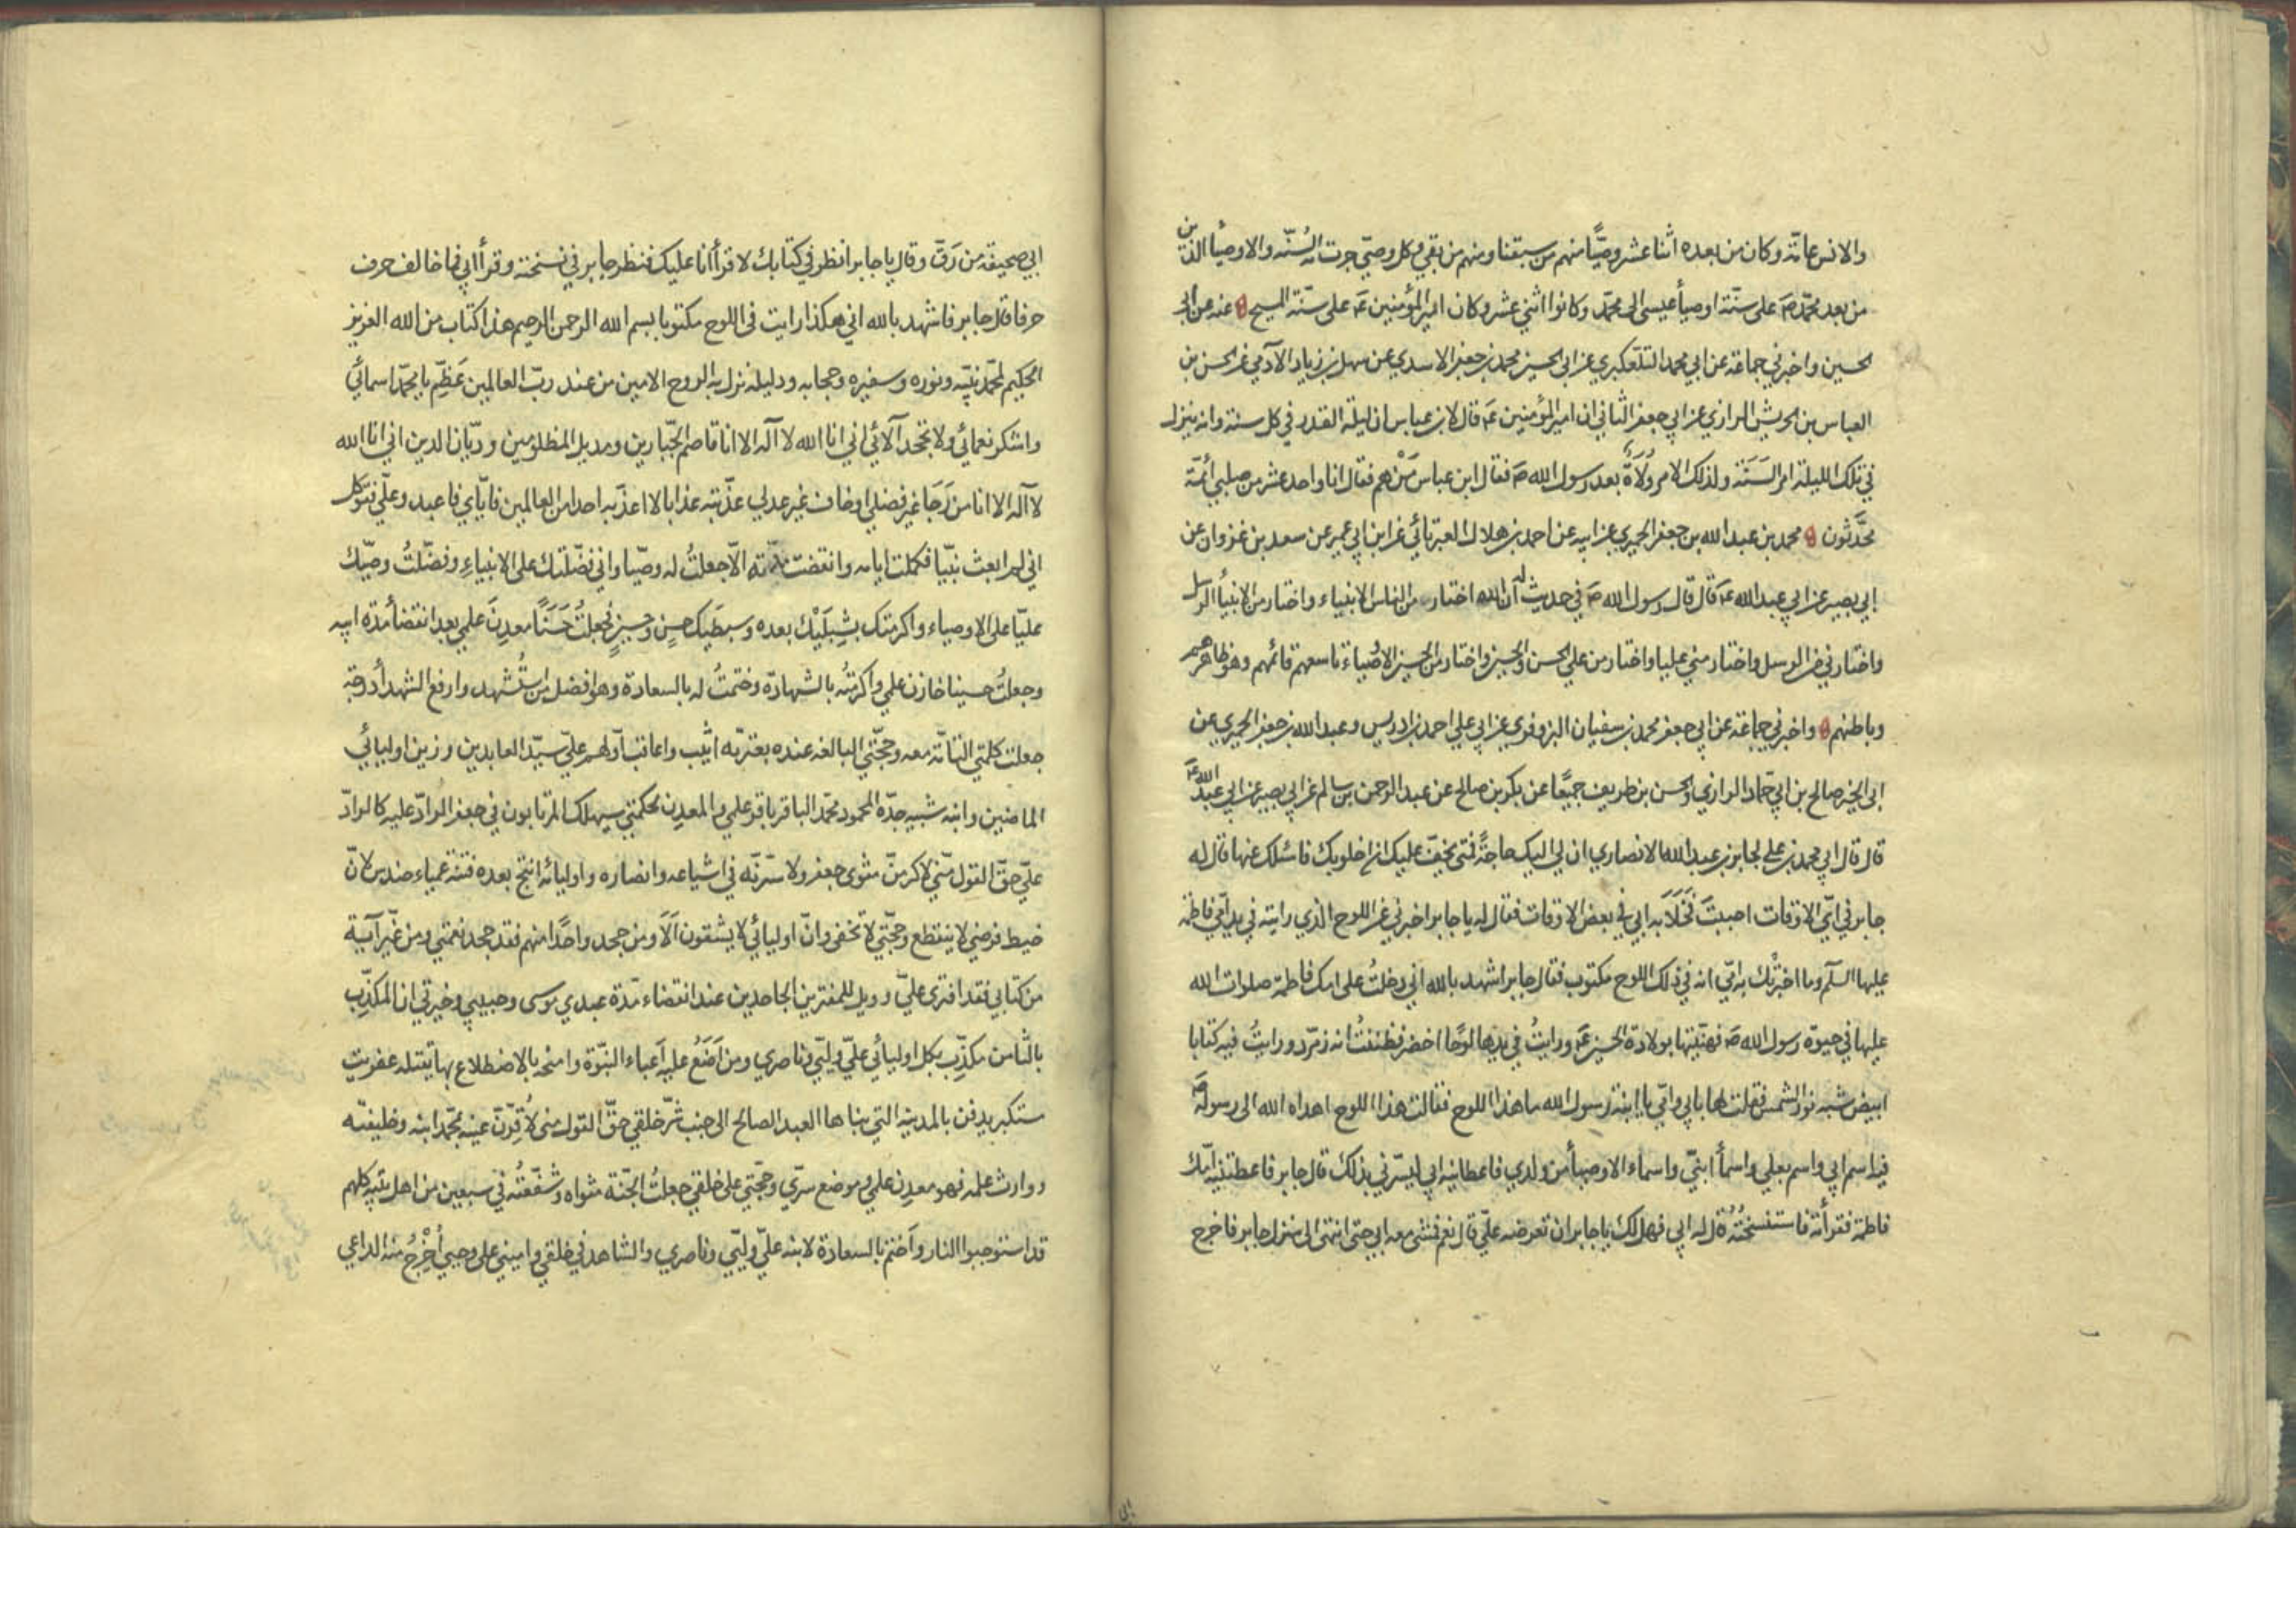 والانس عامّة وكان من بعده اثنا عشر وصيًّا منهم من سبقنا ومنهم من بقي وكل وصيّ جرت به السُنّه والاوصيأ الذين
من بعد محمّد صَ على سنّة اوصيأ عيسى الى محمّد وكانوا اثني عشر وكان امير المؤمنين عَ على سنّة المسيح عنه عن ابي
الحسين واخبرني جماعة عن ابي محمد التلعكبري عن ابي الحسين محمد بن جعفر الاسدي عن سهل بن زياد الآدمي عن الحسن بن
العباس بن الحريش الرازي عن ابي جعفر الثاني ان امير المؤمنين عَ قال لابن عباس ان ليلة القدر في كل سنة وانه ينزل
في تلك الليلة امر السَنَة ولذلك الامر وُلَاةٌ بعد رسول الله صَ فقال ابن عباس مَنْ هم فقال انا واحد عشر من صلبي ائمّة
محَّدثون محمد بن عبد الله بن جعفر الحميري عن ابيه عن احمد بن هلال العبرتائي عن ابن ابي عمير عن سعد بن غزوان عن
ابي بصير عن ابي عبد الله عَ قال قال رسول الله صَ في حديث له ان الله اختار من الناس الانبياء واختار من الانبيأ الرسل
واختارني من الرسل واختار مني عليا واختار من علي الحسن والحسين واختار من الحسين الاوصياء تاسعهم قائمهم وهو ظاهرهم
وباطنهم واخبرني جماعة عن ابي جعفر محمد بن سفيان البزوفري عن ابي علي احمد بن ادريس وعبد الله بن جعفر الحميري عن
ابي الخير صالح بن ابي حمّاد الرازي والحسن بن طريف جميًعا عن بكر بن صالح عن عبد الرحمن بن سالم عن ابي بصير عن ابي عبد الله عَ
قال قال ابي محمد بن علي لجابر بن عبد الله الانصاري ان لي اليك حاجةً فمتى يخفّ عليك ان اخلو بك فاسئلك عنها قال له
جابر في ايّ الاوقات احببتَ فَخَلَا به ابي في بعض الاوقات فقال له يا جابر اخبرني عن اللوح الذي رايته في يد امّي فاطمة
عليها السلم وما اخبرتْك به امّي انه في ذلك اللوح مكتوب فقال جابر اشهد بالله اني دخلتُ على امك فاطمة صلوات الله
عليها في حيوة رسول الله صَ فهنّيتها بولادة الحسين عَ ورايتُ في يدها لوحًا اخضر فظننتُ انه زمرّد ورايتُ فيه كتابا
ابيض شبه نور الشمس فقلت لها بابي وامّي يا ابنة رسول الله ما هذا اللوح فقالت هذا اللوح اهداه الله الى رسوله صَ
فيه اسم ابي واسم بعلي واسمأ ابنيّ واسماء الاوصيأ من ولدي فاعطانيه ابي ليسرّني بذلك قال جابر فاعطتنيه امّك
فاطمة فقرأته فاستنسختُه قال له ابي فهل لك يا جابر ان تعرضه عليّ قال نعم فمشى معه ابي حتى انتهى الى منزل جابر فاخرج
ابي صحيفة من رَقّ وقال يا جابر انظر في كتابك لا قرأ انا عليك فنظر جابر في نسخته وقرأ ابي فما خالف حرف
حرفا قال جابر فاشهد بالله اني هكذا رايت في اللوح مكتوبا بسم الله الرحمن الرحيم هذا كتاب من الله العزيز
الحكيم لمحمّد نبيّه ونوره وسفيره وحجابه ودليله نزل به الروح الامين من عند ربّ العالمين عَظّم يا محمّد اسمائي
واشكر نعمائي ولا تجحد آلائي اني انا الله لا آله الا انا قاصم الجبّارين ومديل المظلومين وديّان الدين اني انا الله
لا آله الا انا من رَجَا غير فضلي او خاف غير عدلي عذّبته عذابا لا اعذّبه احدا من العالمين فايّاي فاعبد وعليّ فتوكّل
اني لم ابعث نبيّا فكملت ايامه وانقضت مدّته الّا جعلتُ له وصيّا واني فضّلتك على الانبياءِ وفضّلتُ وصيّك
عليّا على الاوصياء واكرمتك بشِبلَيْك بعده وسبطَيك حسنٍ وحسينٍ فجعلتُ حَسَنًا معدِنَ علمي بعد انقضأ مدّة ابيه
وجعلتُ حسينا خازن علمي واكرمتُه بالشهادة وختمتُ له بالسعادة وهو افضل من استُشهد وارفع الشهدأ درجة
جعلت كلمتي التامّة معه وحجّتي البالغه عنده بعترته اثيب واعاقب اوّلهم عليّ سيّد العابدين وزين اوليائي
الماضين وابنه شبيه جدّه المحمود محمّد الباقر باقر علمي والمعدِن لحكمتي سيهلك المرتابون في جعفر الرادّ عليه كالرادّ
عليّ حقّ القول منّي لاكرمنّ مثوى جعفر ولاسّرنّه في اشياعه وانصاره واوليائه انتج بعده فتنة عمياء حندس لانّ
خيط فرضي لا ينقطع وحجّتي لا تخفى وانّ اوليائي لا يشقون اَلَا ومن جحد واحدًا منهم فقد جحد نعمتي ومن غيّر آية
من كتابي فقد افترى عليّ وويل للمفترين الجاحدين عند انقضاء مدّة عبدي موسى وحبيبي وخيرتي ان المكذّب
بالثامن مكذّب بكل اوليائي عليّ وليّي وناصري ومن اَضَعُ عليه اَعباء النبّوة وامنحه بالاضطلاع بها يقتله عفريت
مستكبر يدفن بالمدينة التي بناها العبد الصالح الى جنب شرّ خلقي حقّ القول مني لاُقِرّنّ عينه بمحمّد ابنه وخليفته
ووارث علمه فهو معدِن علمي وموضع سرّي وحجّتي على خلقي جعلتُ الجنّة مثواه وشفّعتُه في سبعين من اهل بيته كلهم
قد استوجبوا النار واَختم بالسعادة لابنه عليّ وليّي وناصري والشاهد في خلقي واميني على وحيي اُخْرِجُ منه الداعي
ابي